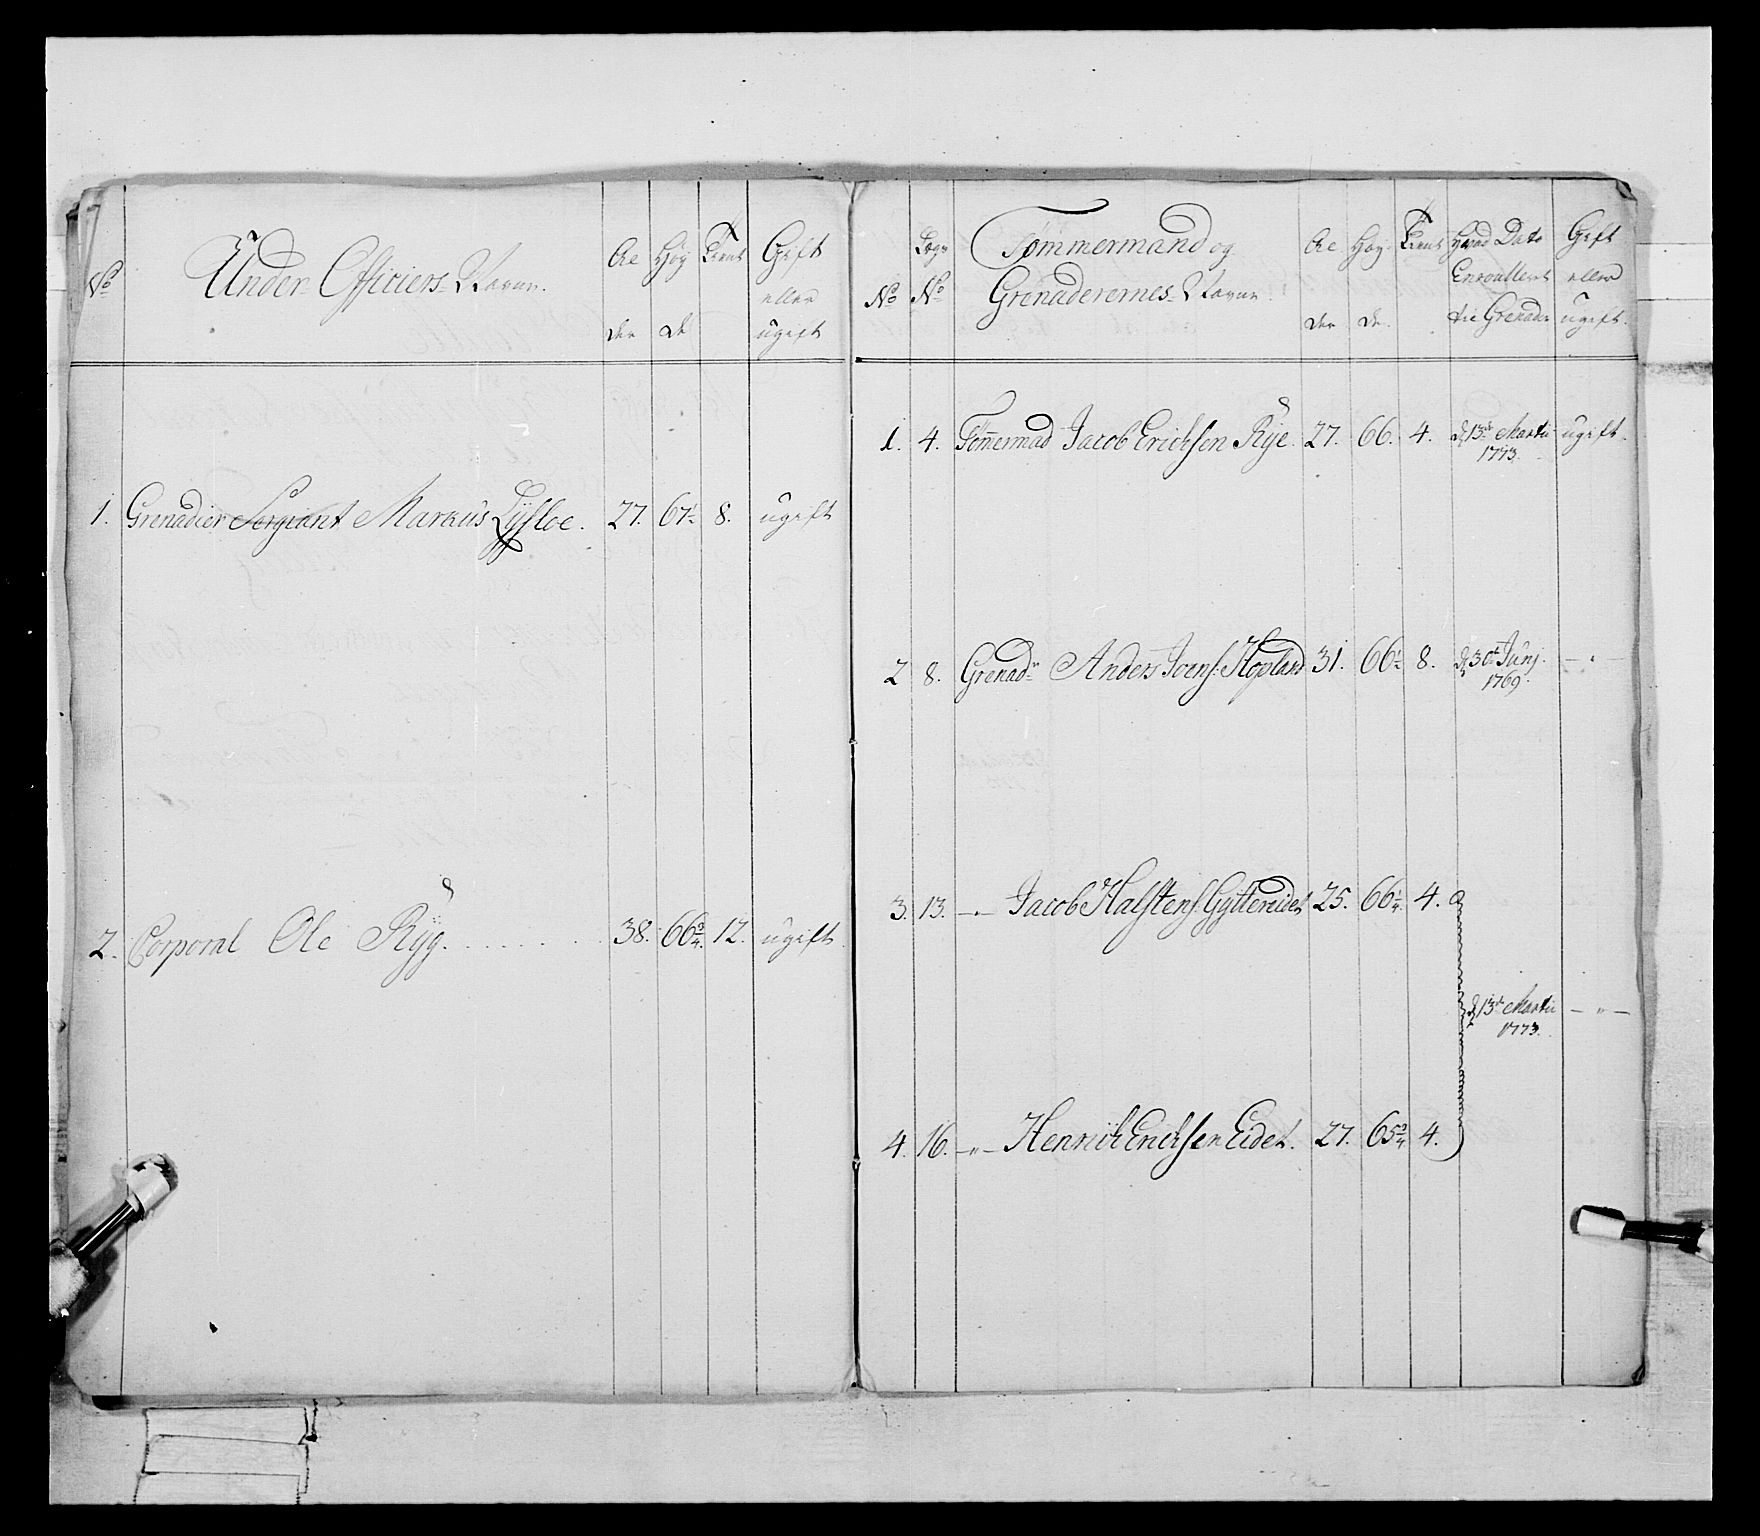 No
Under Officiers Navne.
Al
der
Høy
de
Tient
Gift
eller
ugift
1. Grenadier Sergiant Markus Lysloe. 27. 67½ 8. ugift
2. Corporal Ole Ryg. 38. 66¾. 12. ugift
No
Lægs
No
Tømmermand og
Grenaderernes Navne.
Al
der
Høy
de.
Tient
Hvad Dato
Enroulleret
til Grenader
Gift
eller
ugift.
1. 4. Tømermād Jacob Erichsen Rye. 27. 66. 4. d 13de Martii ugift.
1773.
2 8. Grenadr Anders Joens: Hopland 31. 66½ 8. d 30te Junj. — " —
1769.
3. 13. — " — Jacob Halstens: Gyttereidet 25. 66¼. 4.
d 13de Martii — " —
1773.
4. 16. — " — Henrik Erichsen Eidet. 27. 65¾ 4.